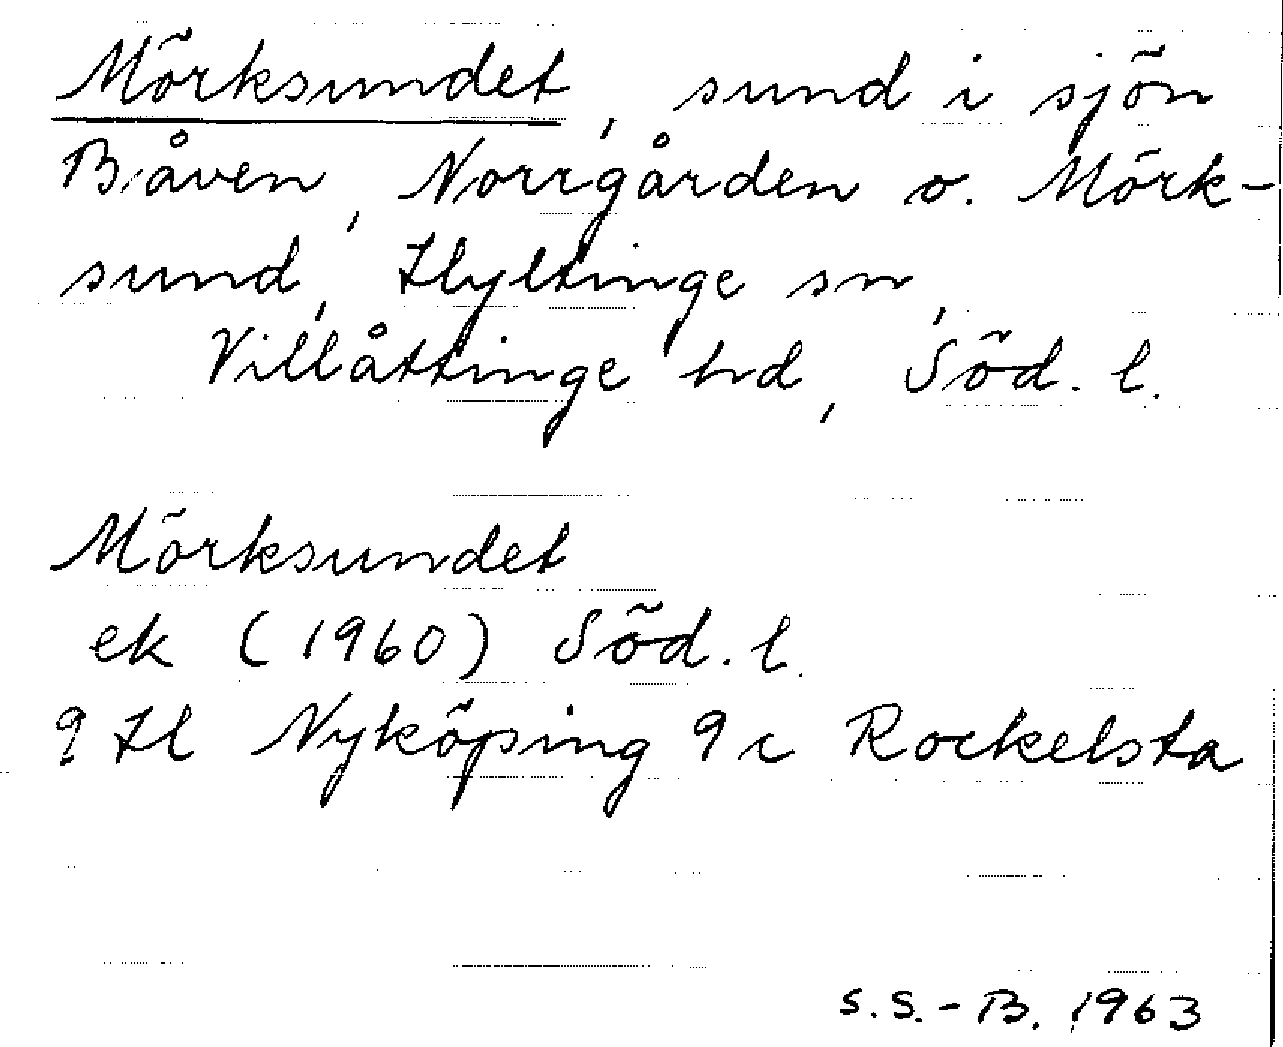 Mörksundet, sund i sjön
Båven, Norrgården o. Mörk-
sund, Hyltinge sn,
Villåttinge hd, Söd. l.
Mörksundet
ek (1960) Söd. l.
9 H Nyköping 9 c Rockelsta
S.S.-B. 1963